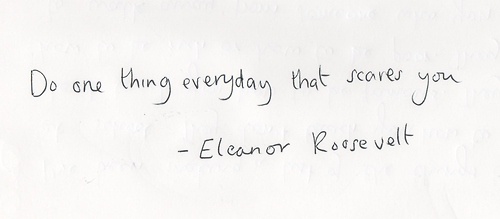 Do one thing everyday that scares you
- Eleanor Roosevelt